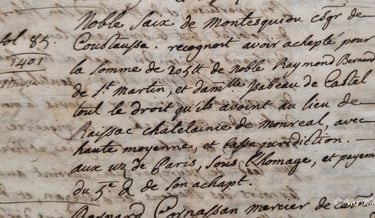 Noble Saix de Montesquieu cõgr de
fol 85. Coustaussa. recognoit avoir achapté pour
1401 la somme de 205tt de noble Raymond Bernard
de St martin, et damlle ysabeau de Castel
tout le droit qu'ils avoint au lieu de
Raissac chatelainie de monreal, avec
haute moyenne, et basse jurisdiction.
aux uz de Paris, sous l'homage, et payemt
du 5e de son achapt.
Bernard mercier de